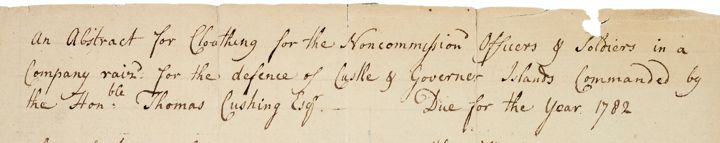 An Abstract for Cloathing for the Noncommissiond Officers & Soldiers in a
Company raisd. for the defence of Castle & Governer Islands Commanded by
the Honble. Thomas Cushing Esqr. — Due for the Year 1782